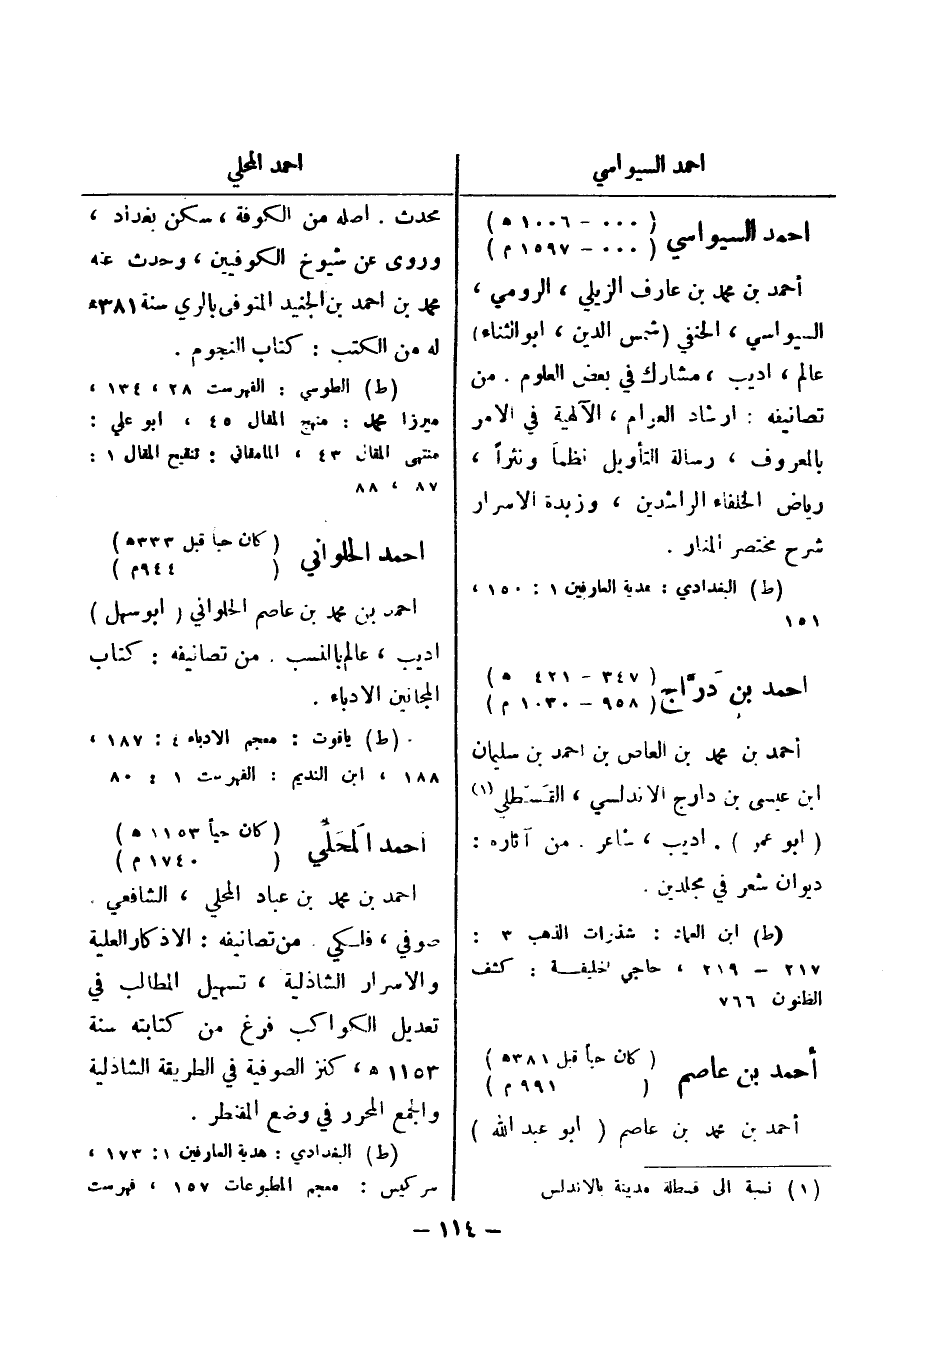 احمد السيواسي
احمد السيواسي
( ٠٠٠ - ١٠٠٦ ه )
( ٠٠٠ - ١٥٩٧ م )
أحمد بن محمد بن عارف الزيلي ، الرومي ،
السيواسي ، الحنفي (شمس الدين ، ابو الثناء)
عالم ، اديب ، مشارك في بعض العلوم . من
تصانيفه : ارشاد العوام ، الآلهية في الامر
بالمعروف ، رسالة التأويل نظماً ونثراً ،
رياض الخلفاء الراشدين ، وزبدة الاسرار
شرح مختصر المنار .
(ط) البغدادي : هدية العارفين ١ : ١٥٠ ،
١٥١
احمد بن دَرَّاج
( ٣٤٧ - ٤٢١ ه )
( ٩٥٨ - ١٠٣٠ م )
أحمد بن محمد بن العاص بن احمد بن سليمان
ابن عيسى بن دارج الاندلسي ، القسطلي (١)
( ابو عمر ) . اديب ، شاعر . من آثاره :
ديوان شعر في مجلدين .
(ط) ابن العماد : شذرات الذهب ٣ :
٢١٧ - ٢١٩ ، حاجي خليفة : كشف
الظنون ٧٦٦
أحمد بن عاصم
( كان حياً قبل ٣٨١ه )
( ٩٩١ م )
أحمد بن محمد بن عاصم ( ابو عبد الله )
(١) نسبة الى قسطلة مدينة بالاندلس
احمد المحلي
محدث . اصله من الكوفة ، سكن بغداد ،
وروى عن شيوخ الكوفيين ، وحدث عنه
محمد بن احمد بن الجنيد المتوفى بالري سنة ٣٨١ه
له من الكتب : كتاب النجوم .
(ط) الطوسي : الفهرست ٢٨ ، ١٣٤ ،
ميرزا محمد : منهج المقال ٤٥ ، ابو علي :
منتهى المقال ٤٣ ، المامقاني : تنقيح المقال ١ :
٨٧ ، ٨٨
احمد الحلواني
( كان حيا قبل ٣٣٣ه )
( ٩٤٤م )
احمد بن محمد بن عاصم الحلواني ( ابو سهل )
اديب ، عالم بالنسب . من تصانيفه : كتاب
المجانين الادباء .
(ط) ياقوت : معجم الادباء ٤ : ١٨٧ ،
١٨٨ ، ابن النديم : الفهرست ١ : ٨٠
احمد المَحَلِّي
( كان حياً ١١٥٣ ه )
( ١٧٤٠ م )
احمد بن محمد بن عباد المحلي ، الشافعي .
صوفي ، فلكي . من تصانيفه : الاذكار العلية
والاسرار الشاذلية ، تسهيل المطالب في
تعديل الكواكب فرغ من كتابته سنة
١١٥٣ ه ، كنز الصوفية في الطريقة الشاذلية
والجمع المحرر في وضع المقنطر .
(ط) البغدادي : هدية العارفين ١ : ١٧٣ ،
سركيس : معجم المطبوعات ١٥٧ ، فهرست
- ١١٤ -